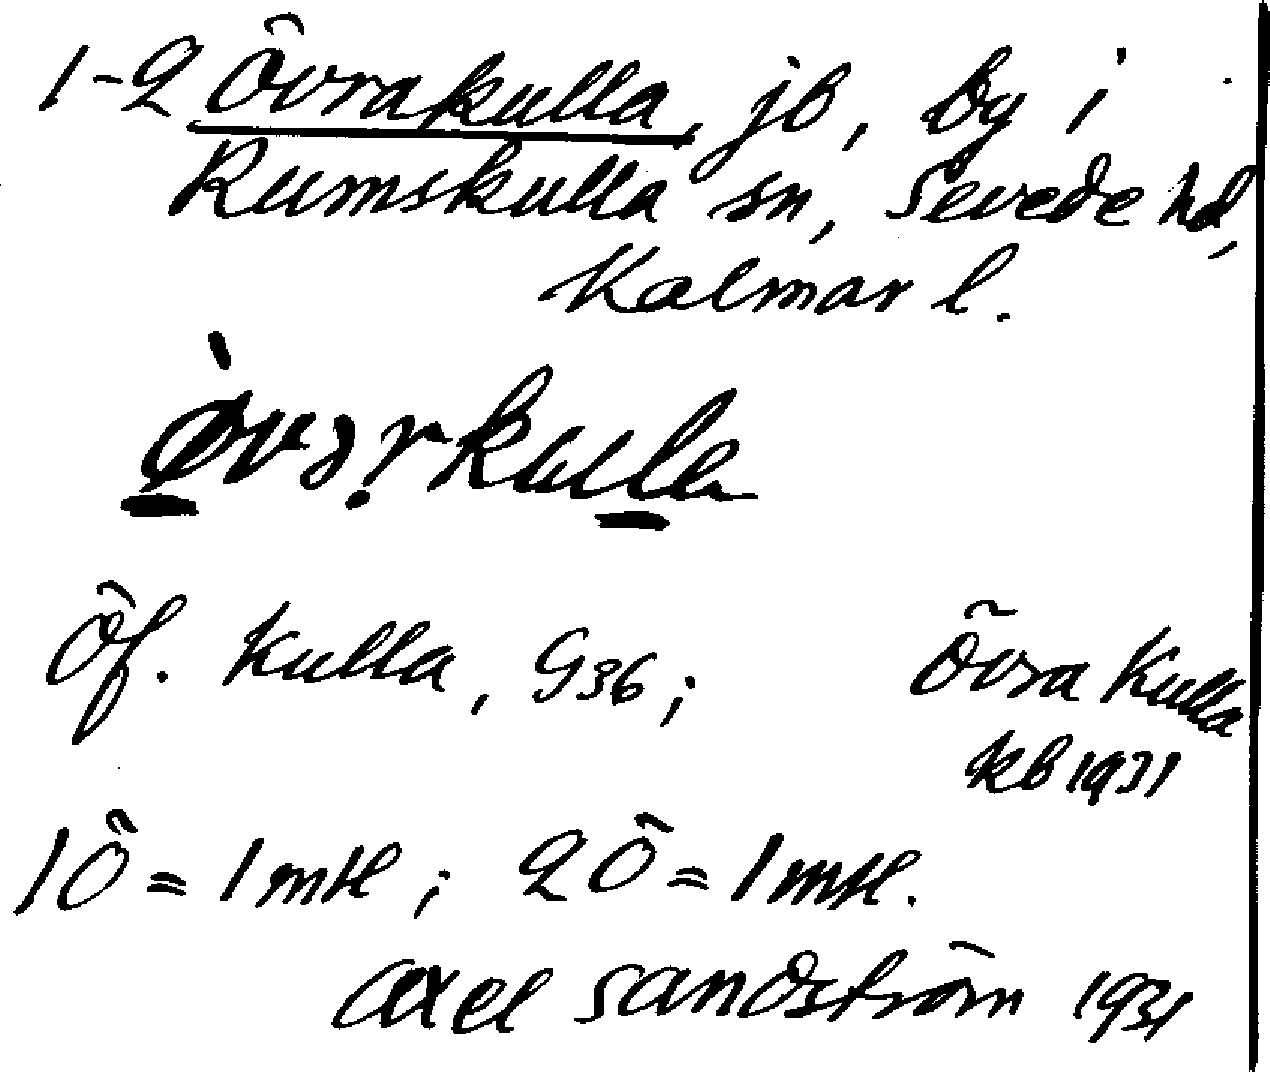 1-2 Övrakulla, jb, by i
Rumskulla sn, Sevede hd,
Kalmar l.
Öf. Kulla, G36; Övra Kulla
kb 1931
1 Ö = 1 mtl; 2 Ö = 1 mtl.
Axel Sandström 1931